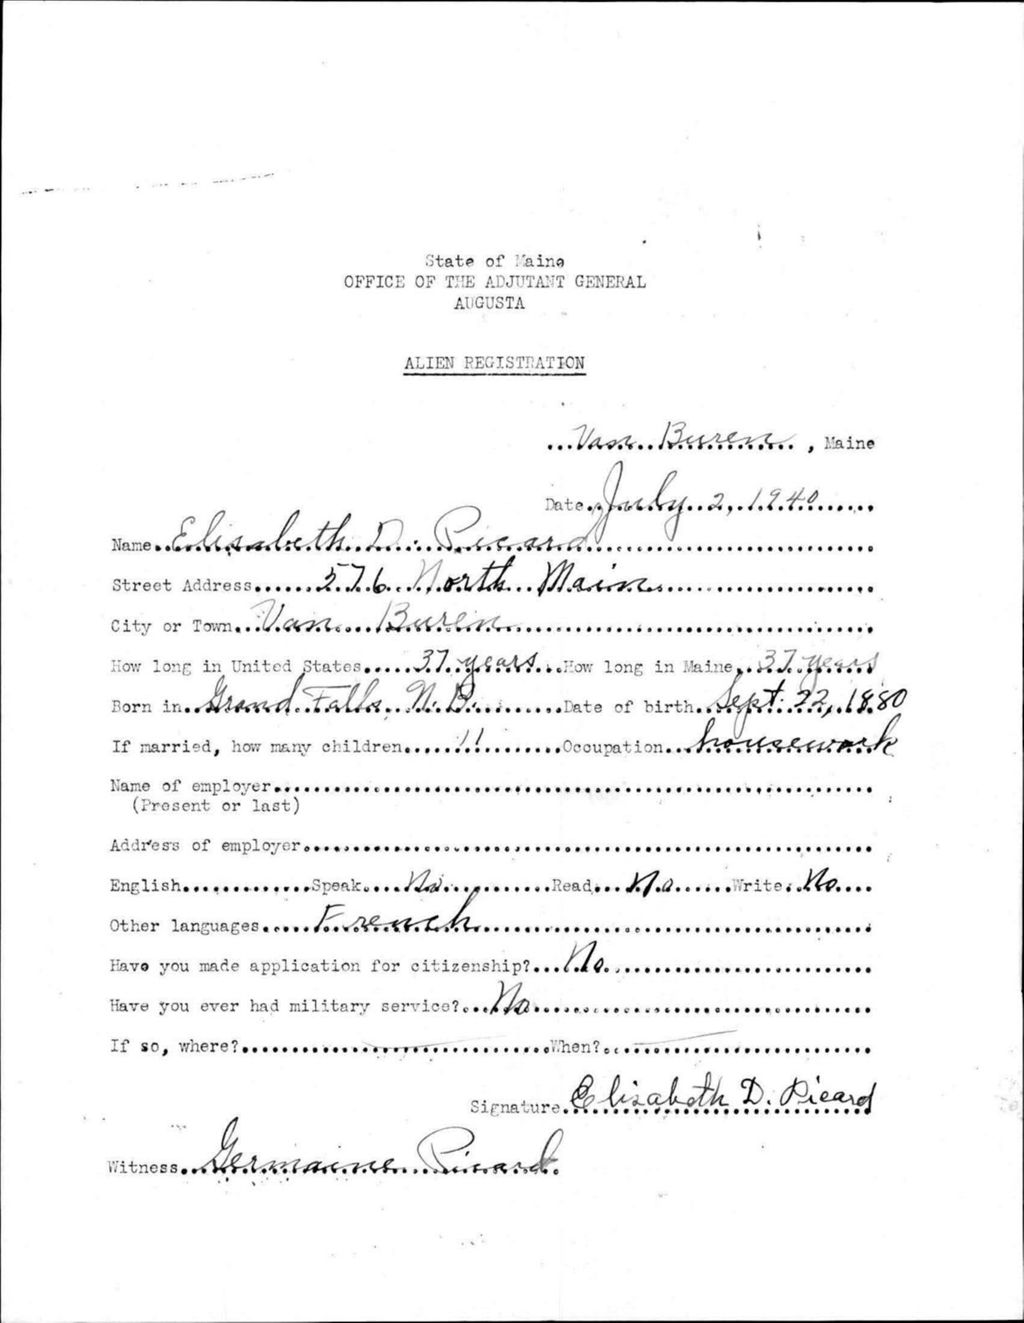 State of Maine
OFFICE OF THE ADJUTANT GENERAL
AUGUSTA
ALIEN REGISTRATION
Van Buren, Maine
Date July 2, 1940
Name Elisabeth D. Picard
Street Address 576 North Main
City or Town Van Buren
How long in United States 37 years How long in Maine 37 years
Born in Grand Falls, N.B. Date of birth Sept. 22, 1880
If married, how many children 11 Occupation housework
Name of employer
(Present or last)
Address of employer
English Speak No Read No Write No
Other languages French
Have you made application for citizenship? No
Have you ever had military service? No
If so, where? When?
Signature Elisabeth D. Picard
Witness Germaine Picard